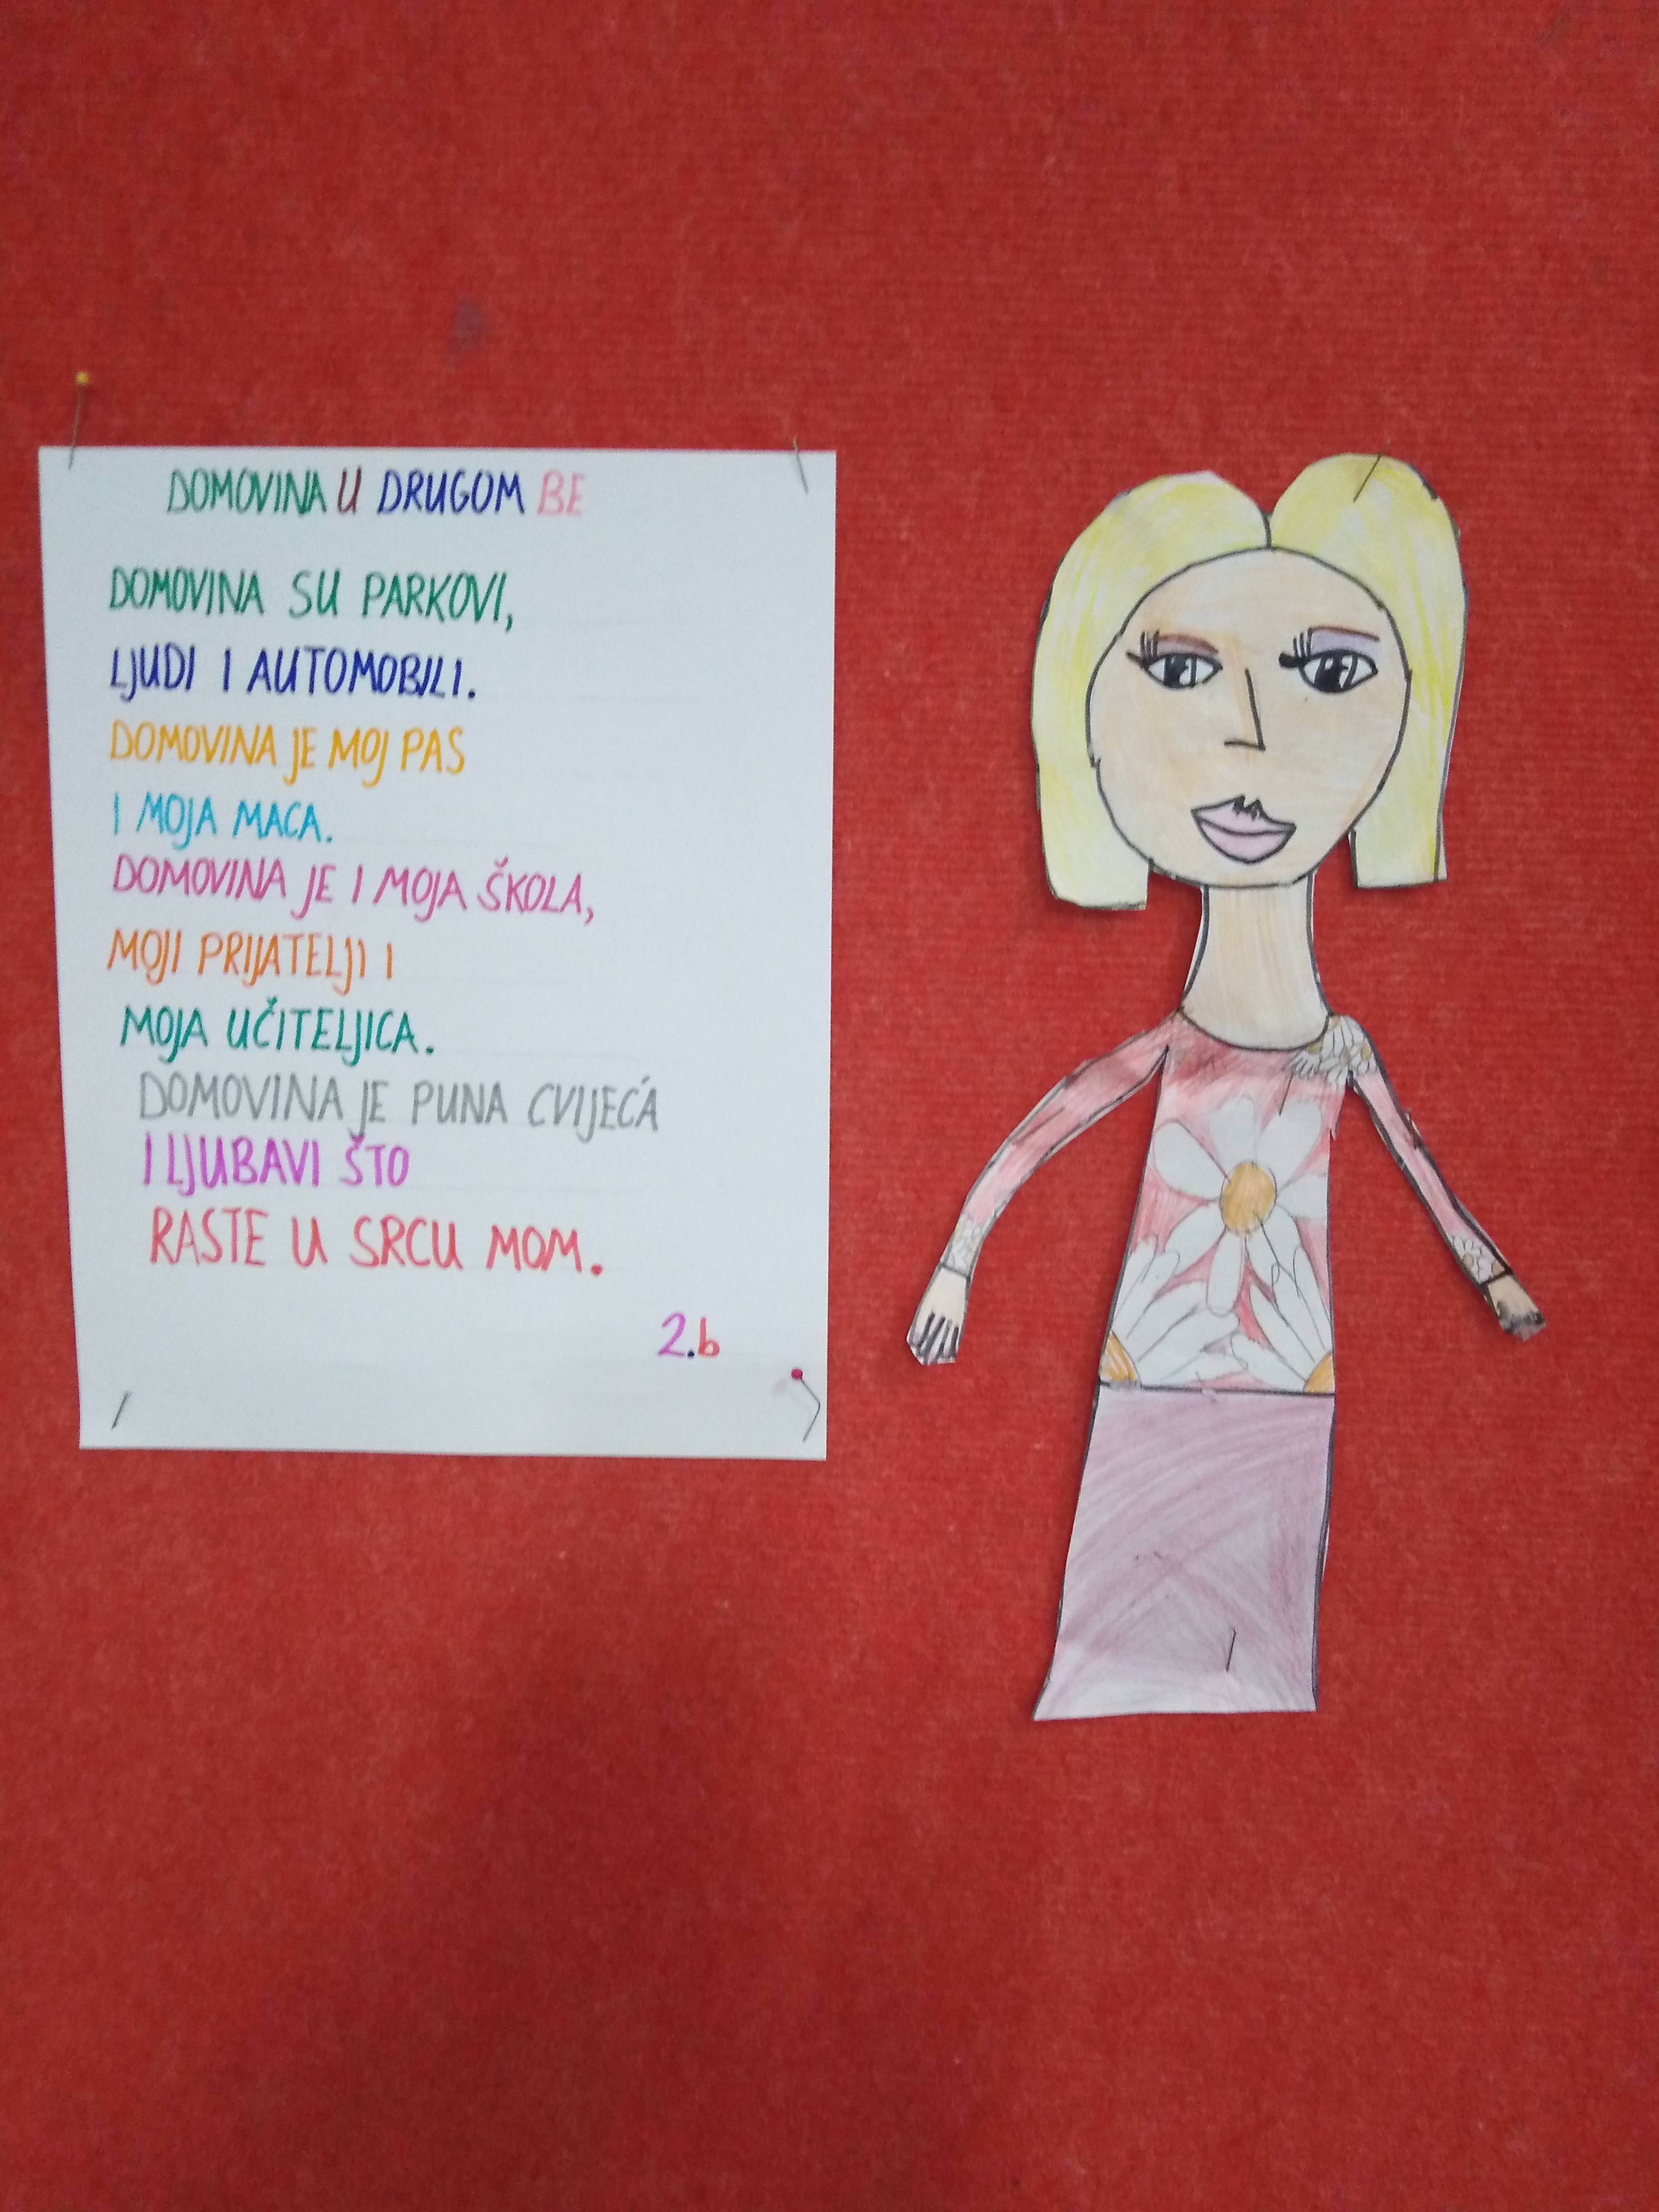 DOMOVINA U DRUGOM BE
DOMOVINA SU PARKOVI,
LJUDI I AUTOMOBILI.
DOMOVINA JE MOJ PAS
I MOJA MACA.
DOMOVINA JE I MOJA ŠKOLA,
MOJI PRIJATELJI I
MOJA UČITELJICA.
DOMOVINA JE PUNA CVIJEĆA
I LJUBAVI ŠTO
RASTE U SRCU MOM.
2.b